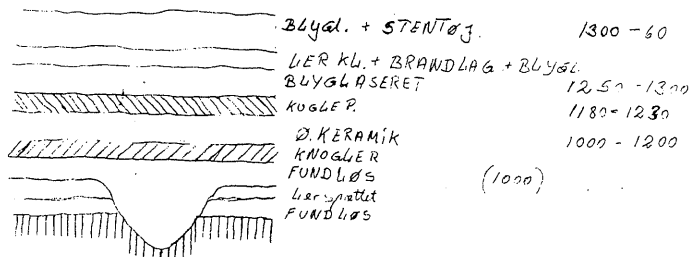 BLYGL. + STENTØJ. 1300-60
LER KL. + BRANDLAG + BLYGL.
BLYGLASERET 1250-1300
KUGLEP. 1180-1230
Ø. KERAMIK 1000-1200
KNOGLER
FUNDLØS (1000)
Lerspættet
FUNDLØS